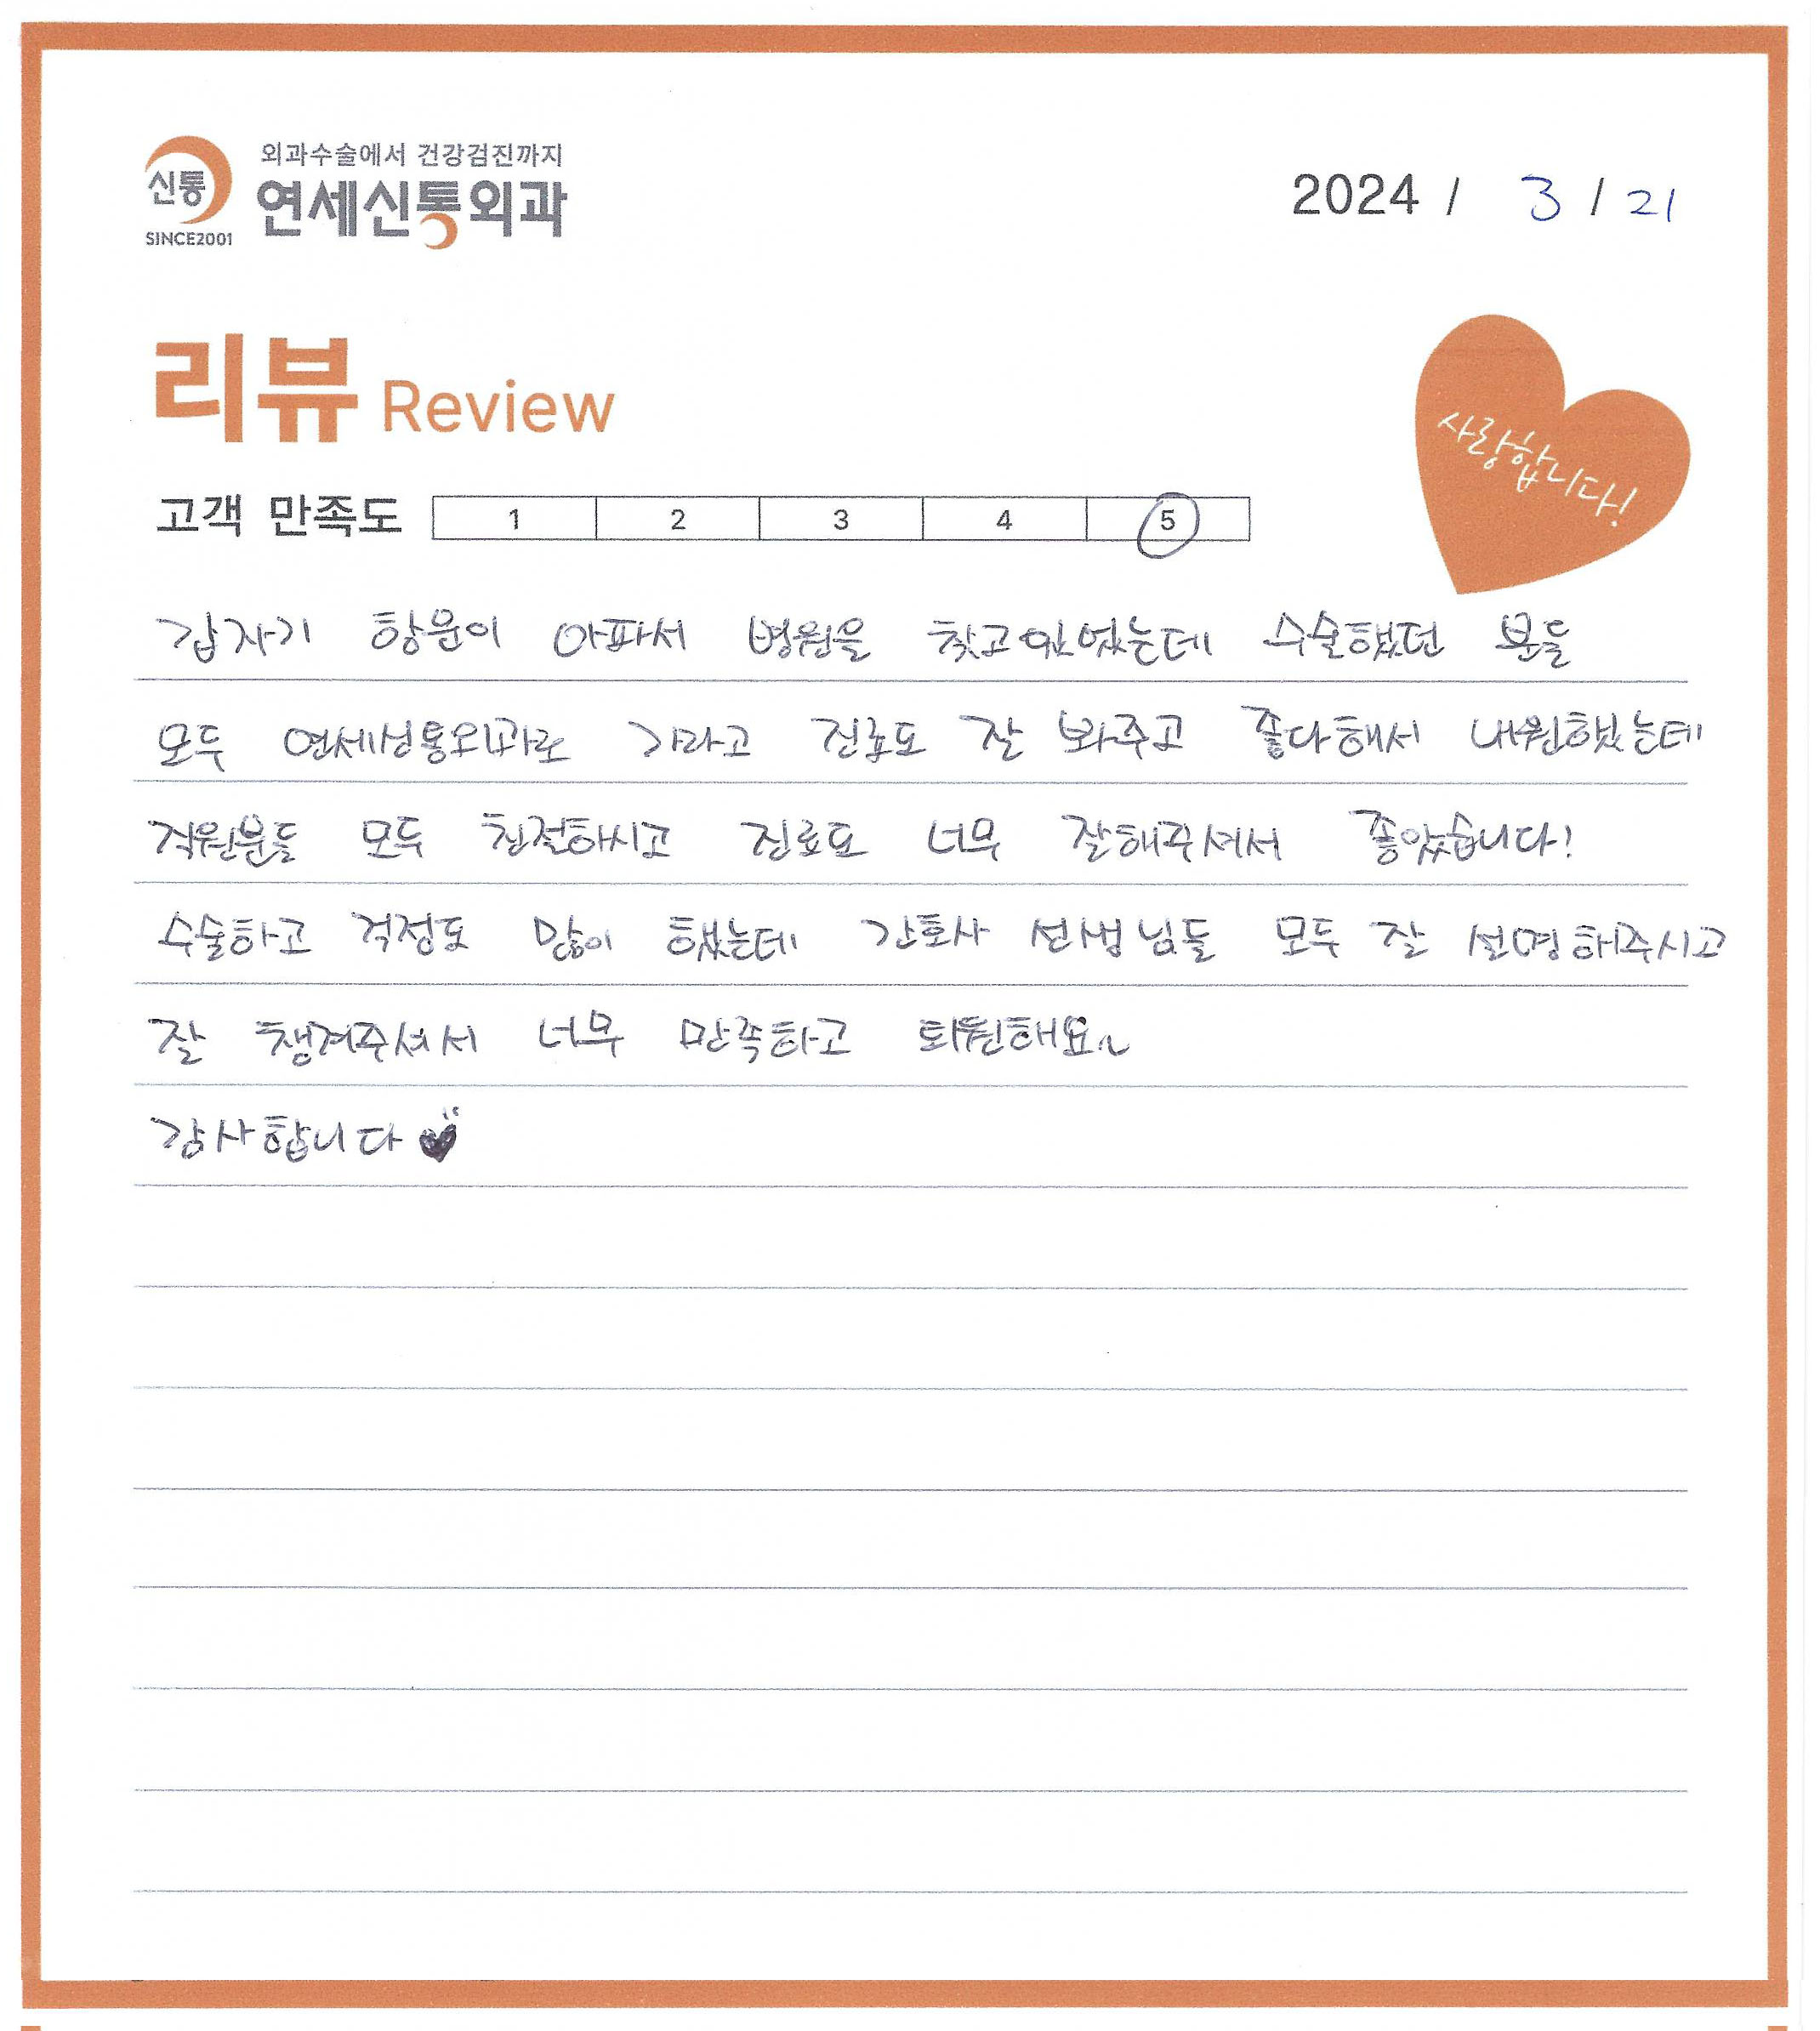 외과수술에서 건강검진까지
신통
연세신통외과
SINCE2001
2024 / 3 / 21
리뷰 Review
사랑합니다!
고객 만족도 1 2 3 4 5
갑자기 항문이 아파서 병원을 찾고있었는데 수술했던 분들
모두 연세성통외과로 가라고 진료도 잘 봐주고 좋다해서 내원했는데
직원분들 모두 친절하시고 진료도 너무 잘해주셔서 좋았습니다!
수술하고 걱정도 많이 했는데 간호사 선생님들 모두 잘 설명해주시고
잘 챙겨주셔서 너무 만족하고 퇴원해요~
감사합니다♥